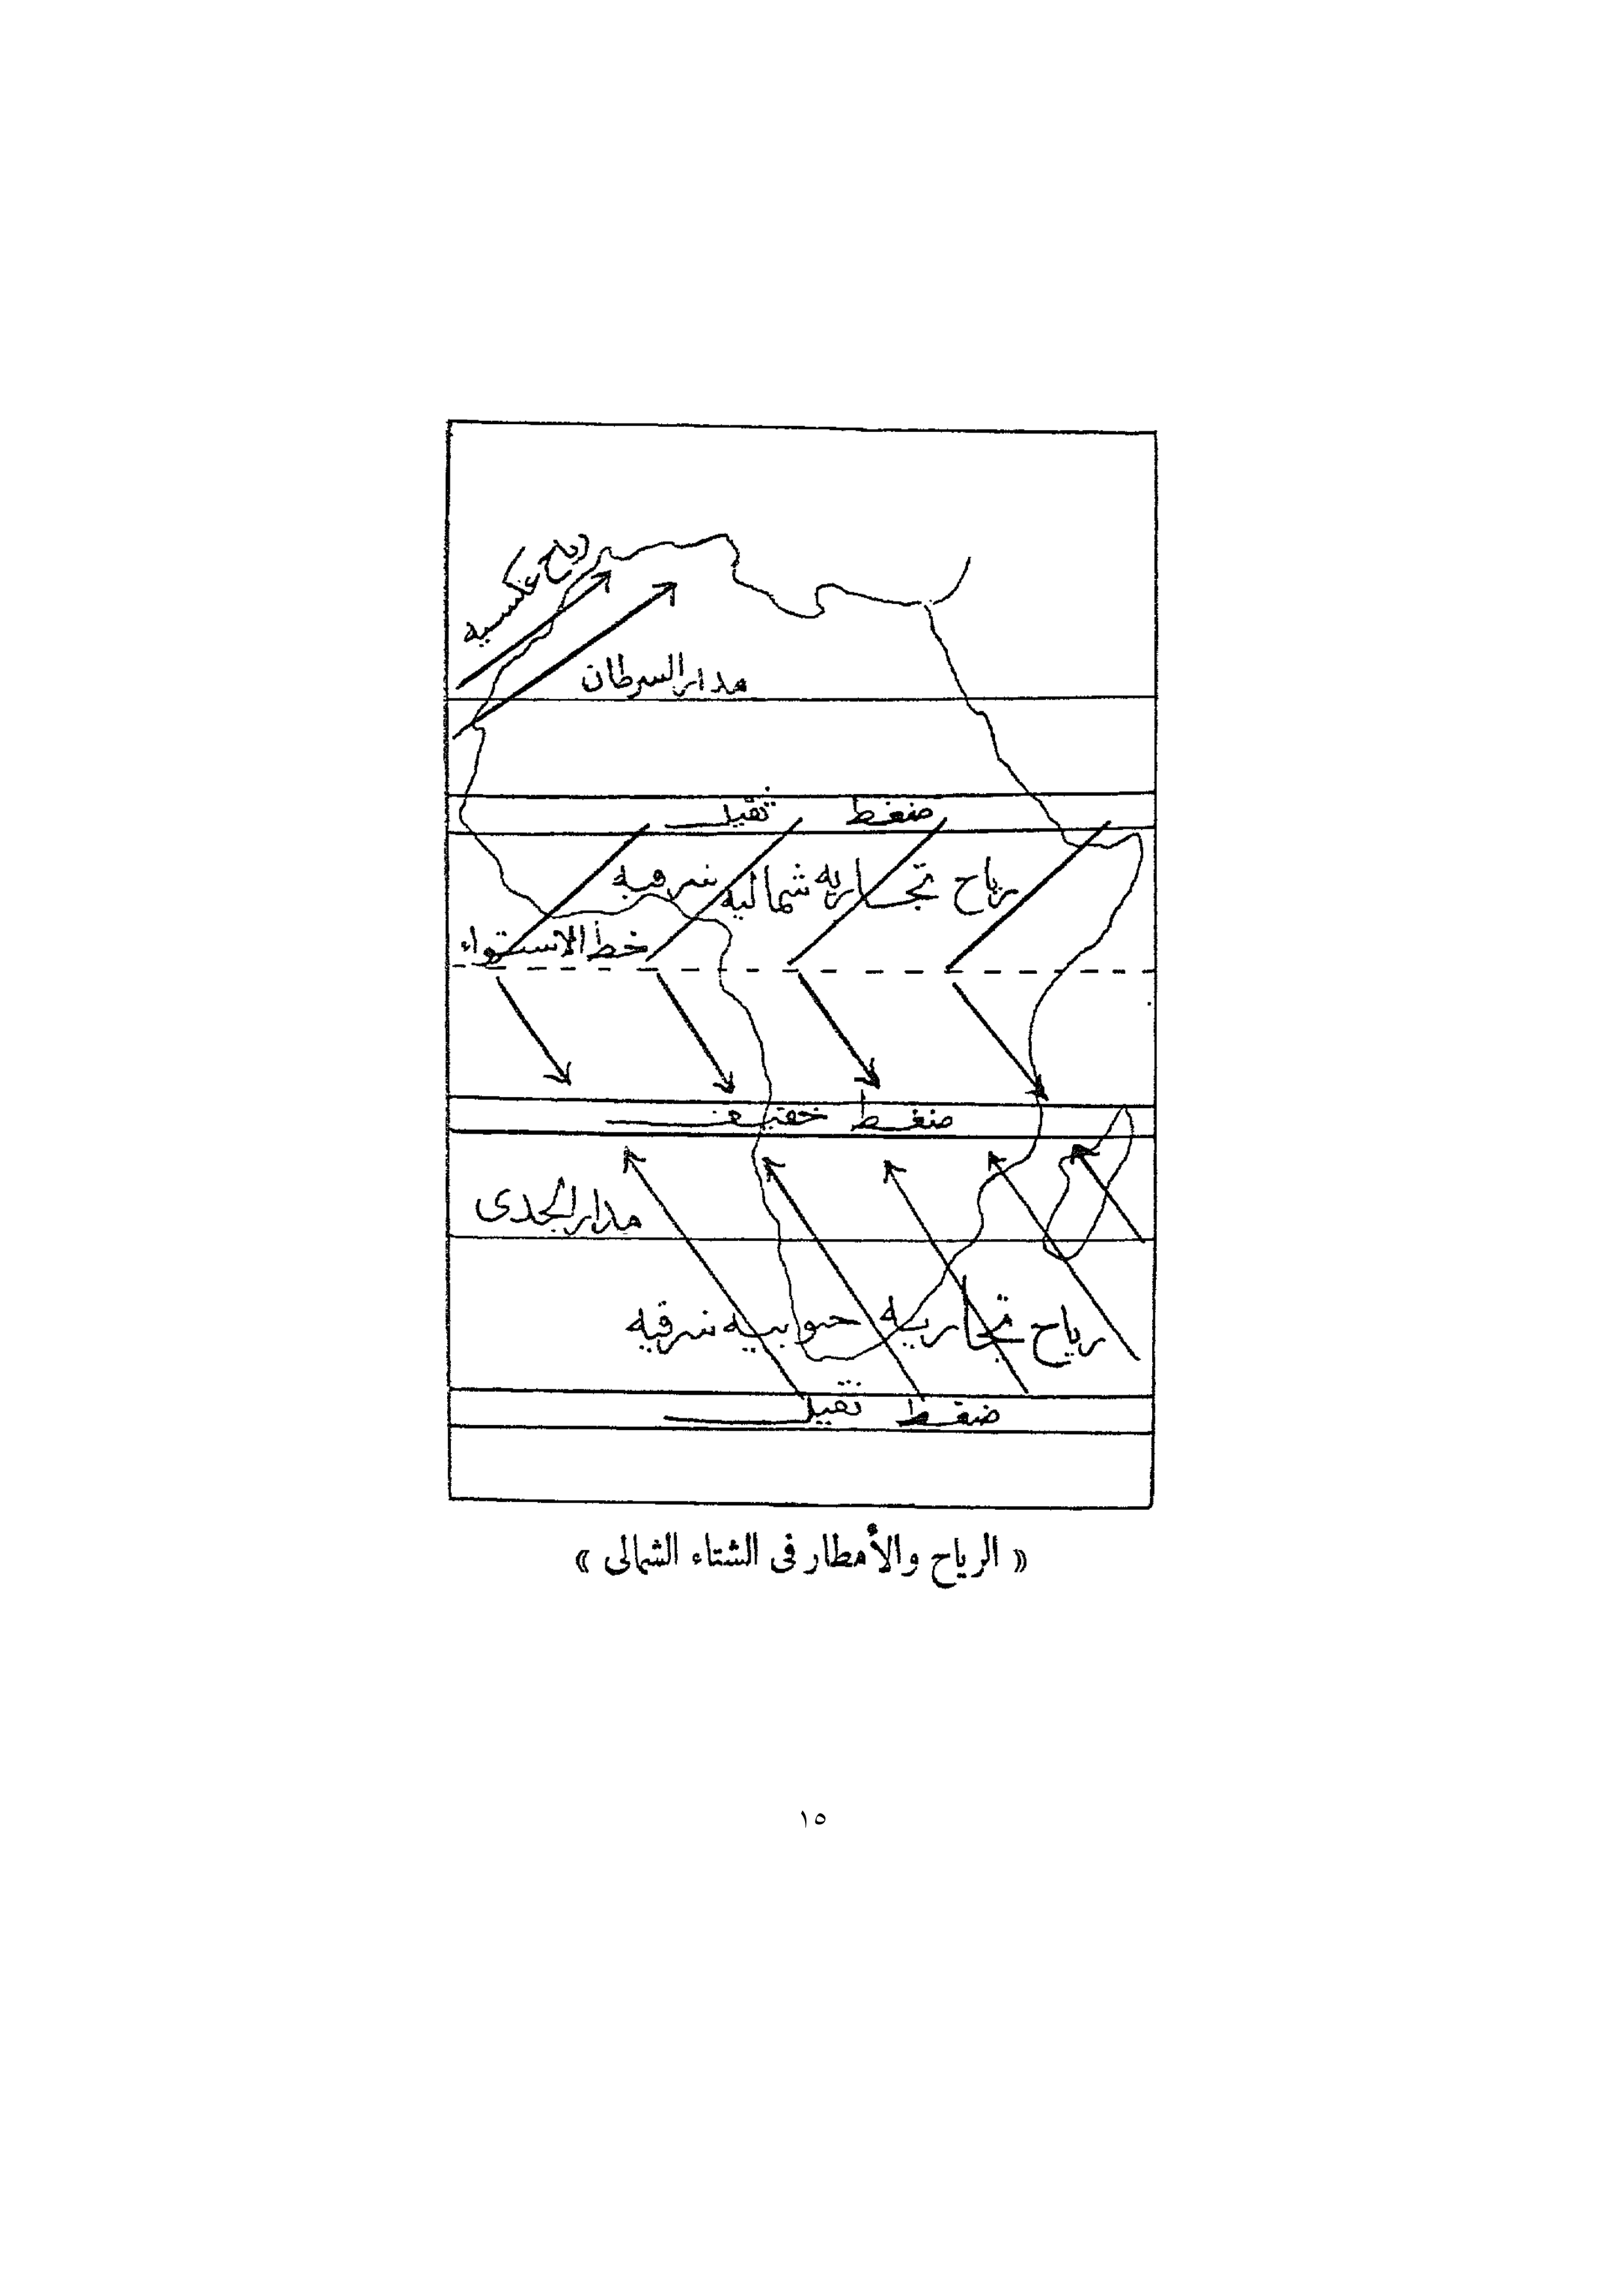 ريح عكسيه
مدار السرطان
ضغط ثقيل
رياح تجاريه شماليه شرقيه
خط الاستواء
ضغط خفيف
مدار الجدى
رياح تجاريه جنوبيه شرقيه
ضغط ثقيل
« الرياح والأمطار فى الشتاء الشمالى »
١٥